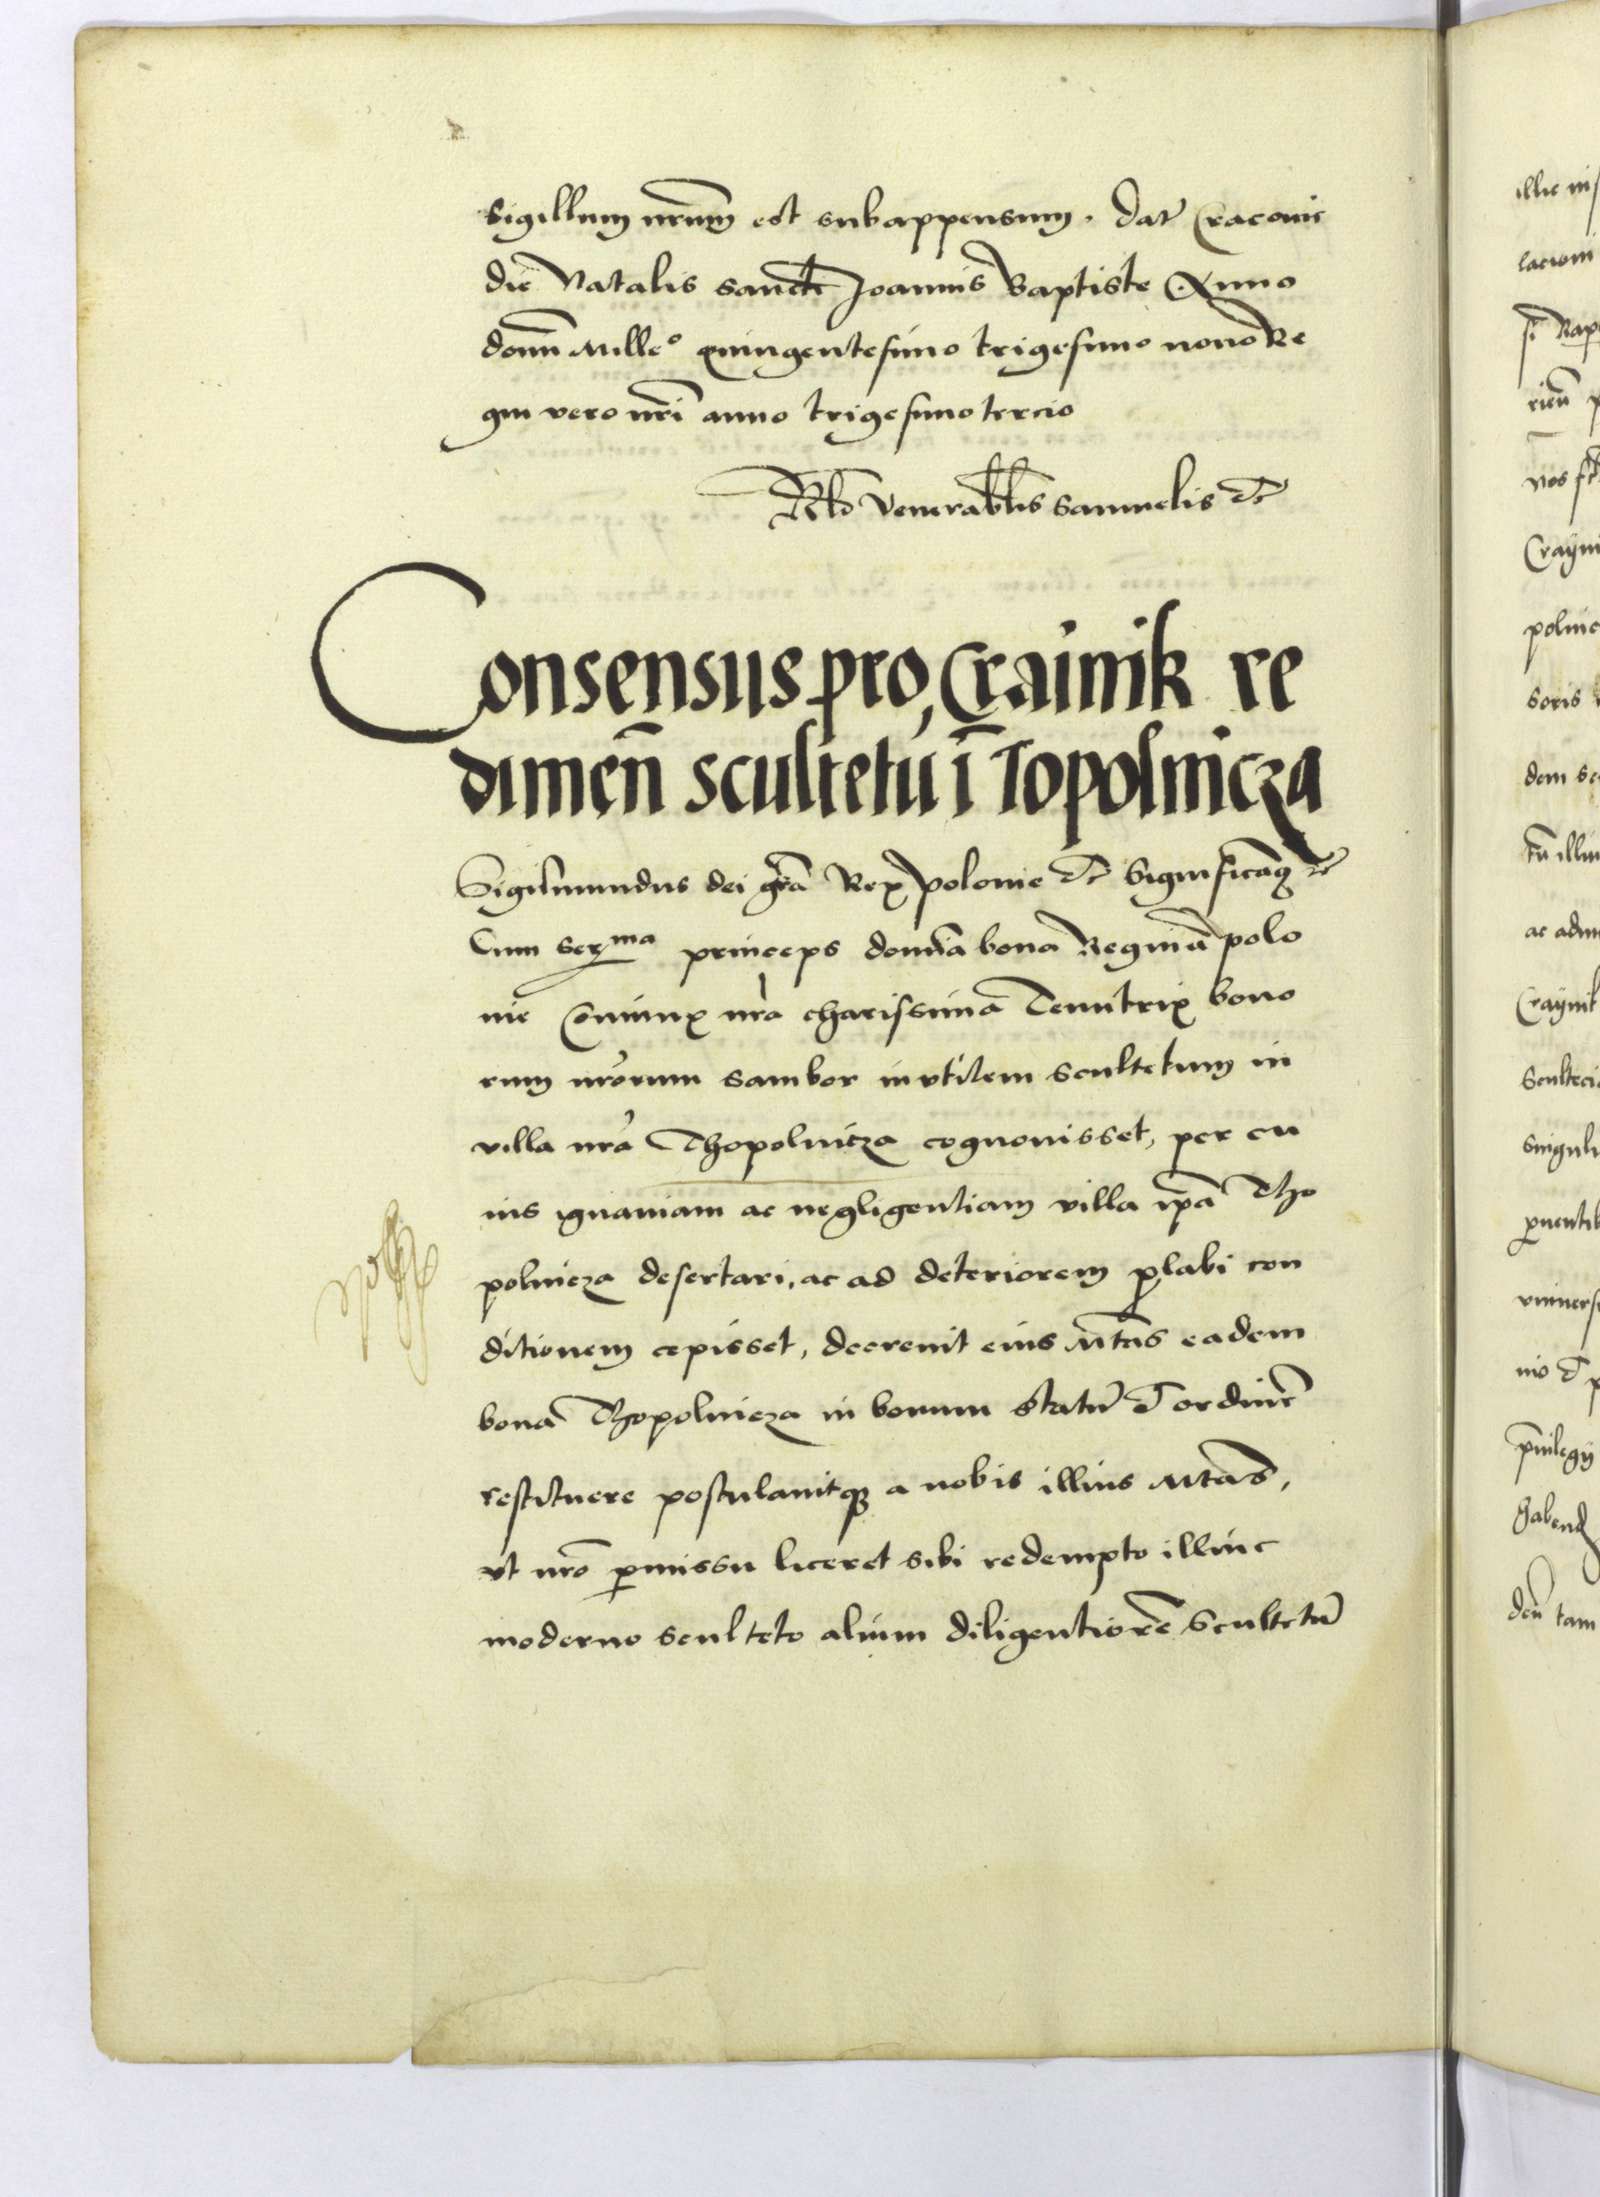 Sigillum nrum̄ est subappensum. Dat̄ Cracouie
die Natalis sancti Joannis Baptiste Anno
domī Milleᵒ quingentesimo trigesimo nono Re
gni vero nrī anno trigesimo tercio
Rlo venerablis Samuelis etc̄
Consensus pro Crainik re
dimen̄ scultetū ī Topolnicza
Sigismundus dei grā Rex polonie etc̄ Significamꝰ etc̄
Cum Serᵐᵃ princeps domīa bona Regina polo
nie Coniunx nrā charissima Tenutrix bono
rum nrōrum sambor inutilem scultetum in
villa nrā Thopolnicza cognouisset, per cu
ius ignauiam ac negligentiam villa ip̄a Tho
polnicza desertari, ac ad deteriorem p̱labi con
ditionem cepisset, decreuit eius Mtas̄ eadem
bona Thopolnicza in bonum statū et ordinē
restituere postulauitqꝫ a nobis illius Mtas̄,
vt nrō p̱missu liceret sibi redempto illinc
moderno sculteto alium diligentiorē Scultetū
illic
lacioni
vos
Crayni
polnic
soris
dem sc
ac adm
Craynik
Sculteci
singuli
vniuers
nio et p
habend
tam